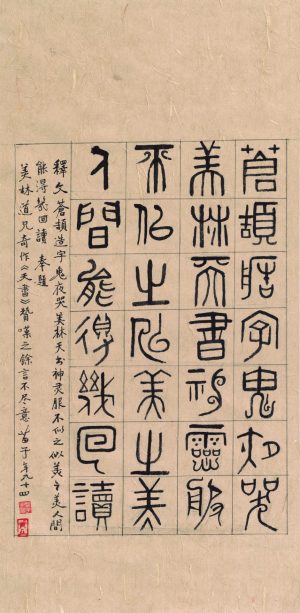 蒼頡造字鬼夜哭
美林天書神靈服
不似之似美之美
人間能得幾回讀
釋文 蒼頡造字鬼夜哭美林天书神灵服不似之似美之美人間
能得幾回讀 奉題
美林道兄奇作《天书》贊嘆之餘言不尽意 苗子年九十四